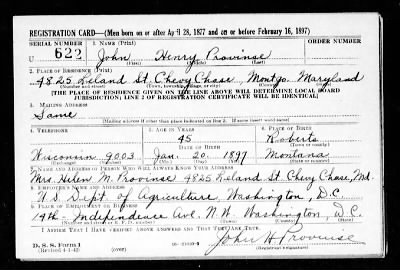 REGISTRATION CARD—(Men born on or after April 28, 1877 and on or before February 16, 1897)
SERIAL NUMBER 1. NAME (Print) ORDER NUMBER
U 622 John Henry Provinse
(First) (Middle) (Last)
2. PLACE OF RESIDENCE (Print)
4825 Leland St. Chevy Chase, Montgo. Maryland
(Number and street) (Town, township, village, or city) (County) (State)
[THE PLACE OF RESIDENCE GIVEN ON THE LINE ABOVE WILL DETERMINE LOCAL BOARD
JURISDICTION; LINE 2 OF REGISTRATION CERTIFICATE WILL BE IDENTICAL]
3. MAILING ADDRESS
Same
(Mailing address if other than place indicated on line 2. If same insert word same)
4. TELEPHONE 5. AGE IN YEARS 6. PLACE OF BIRTH
45 Roberts
DATE OF BIRTH (Town or county)
Wisconsin 9003 Jan. 20. 1897 Montana
(Exchange) (Number) (Mo.) (Day) (Yr.) (State or country)
7. NAME AND ADDRESS OF PERSON WHO WILL ALWAYS KNOW YOUR ADDRESS
Mrs. Helen M. Provinse 4825 Leland St. Chevy Chase, Md.
8. EMPLOYER'S NAME AND ADDRESS
U.S. Dept. of Agriculture, Washington, D.C.
9. PLACE OF EMPLOYMENT OR BUSINESS
14th - Independence Ave. N.W. Washington, D.C.
(Number and street or R. F. D. number) (Town) (County) (State)
I AFFIRM THAT I HAVE VERIFIED ABOVE ANSWERS AND THAT THEY ARE TRUE.
D. S. S. Form 1
(Revised 4-1-42) (over) John H. Provinse
(Registrant's signature)